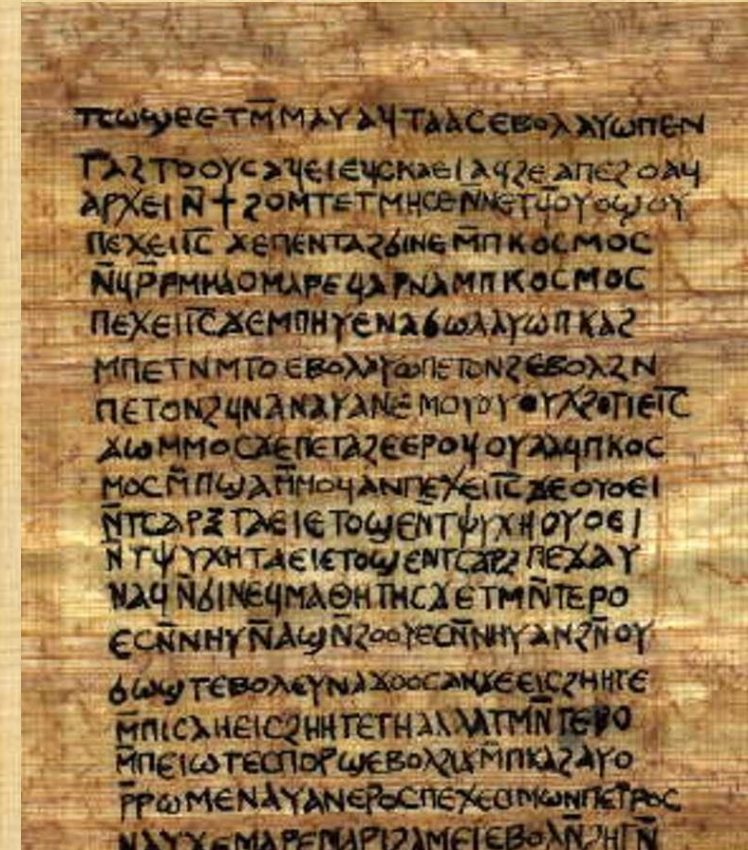 ⲧⲥⲱϣⲉⲉⲧⲙ̄ⲙⲁⲩⲁϥⲧⲁⲁⲥⲉⲃⲟⲗⲁⲩⲱⲡⲉⲛ
ⲧⲁϩⲧⲟⲟⲩⲥⲁϥⲉⲓⲉϥⲥⲕⲁⲉⲓⲁϥϩⲉⲁⲡⲉϩⲟⲁϥ
ⲁⲣⲭⲉⲓⲛ̄ϯϩⲟⲙⲧⲉⲧⲙⲏⲥⲉⲛ̄ⲛⲉⲧϥ̄ⲟⲩⲟϣⲟⲩ
ⲡⲉϫⲉⲓ̅ⲥ̅ϫⲉⲡⲉⲛⲧⲁϩϭⲓⲛⲉⲙ̄ⲡⲕⲟⲥⲙⲟⲥ
ⲛ̄ϥⲣ̄ⲣⲙⲙⲁⲟⲙⲁⲣⲉϥⲁⲣⲛⲁⲙⲡⲕⲟⲥⲙⲟⲥ
ⲡⲉϫⲉⲓ̅ⲥ̅ϫⲉⲙⲡⲏⲩⲉⲛⲁϭⲱⲗⲁⲩⲱⲡⲕⲁϩ
ⲙⲡⲉⲧⲛⲙⲧⲟⲉⲃⲟⲗⲁⲩⲱⲡⲉⲧⲟⲛϩⲉⲃⲟⲗϩⲛ
ⲡⲉⲧⲟⲛϩϥⲛⲁⲛⲁⲩⲁⲛⲉⲙⲟⲩⲟⲩⲟⲩⲭϩⲟⲧⲓⲉⲓ̅ⲥ̅
ϫⲱⲙⲙⲟⲥϫⲉⲡⲉⲧⲁϩⲉⲉⲣⲟϥⲟⲩⲁⲁϥⲡⲕⲟⲥ
ⲙⲟⲥⲙ̄ⲡϣⲁⲙ̄ⲙⲟϥⲁⲛⲡⲉϫⲉⲓ̅ⲥ̅ϫⲉⲟⲩⲟⲉⲓ
ⲛ̄ⲧⲥⲁⲣⲝⲧⲁⲉⲓⲉⲧⲟϣⲉⲛ̄ⲧⲯⲩⲭⲏⲟⲩⲟⲉⲓ
ⲛⲧⲯⲩⲭⲏⲧⲁⲉⲓⲉⲧⲟϣⲉⲛⲧⲥⲁⲣⲝⲡⲉϫⲁⲩ
ⲛⲁϥⲛ̄ϭⲓⲛⲉϥⲙⲁⲑⲏⲧⲏⲥϫⲉⲧⲙⲛ̄ⲧⲉⲣⲟ
ⲉⲥⲛ̄ⲛⲏⲩⲛ̄ⲁϣⲛ̄ϩⲟⲟⲩⲉⲥⲛ̄ⲛⲏⲩⲁⲛϩⲛ̄ⲟⲩ
ϭⲱϣⲧⲉⲃⲟⲗⲉⲩⲛⲁϫⲟⲟⲥⲁⲛϫⲉⲉⲓⲥϩⲏⲏⲧⲉ
ⲙ̄ⲡⲓⲥⲁⲏⲉⲓⲥϩⲏⲏⲧⲉⲧⲏⲁⲗⲗⲁⲧⲙⲛ̄ⲧⲉⲣⲟ
ⲙ̄ⲡⲉⲓⲱⲧⲉⲥⲡⲟⲣϣⲉⲃⲟⲗϩⲓϫⲙ̄ⲡⲕⲁϩⲁⲩⲟ
ⲣ̄ⲣⲱⲙⲉⲛⲁⲩⲁⲛⲉⲣⲟⲥⲡⲉϫⲉⲥⲓⲙⲱⲛⲡⲉⲧⲣⲟⲥ
ⲛⲁⲩϫⲉⲙⲁⲣⲉⲙⲁⲣⲓϩⲁⲙⲉⲓⲉⲃⲟⲗⲛ̄ϩⲏⲧⲛ̄